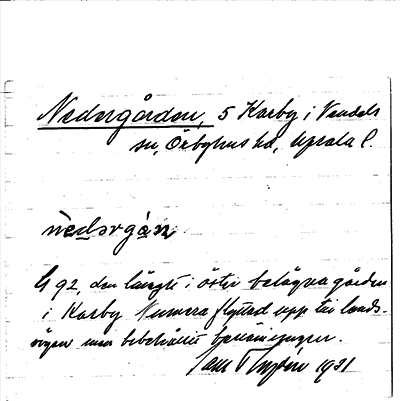 Nedergården, 5 Karby i Vendels
sn, Örbyhus hd, Upsala l.
nedərgán
G 92, den längst i öster belägna gården
i Karby Numera flyttad upp till lands-
vägen men bibehållit benämningen.
1931